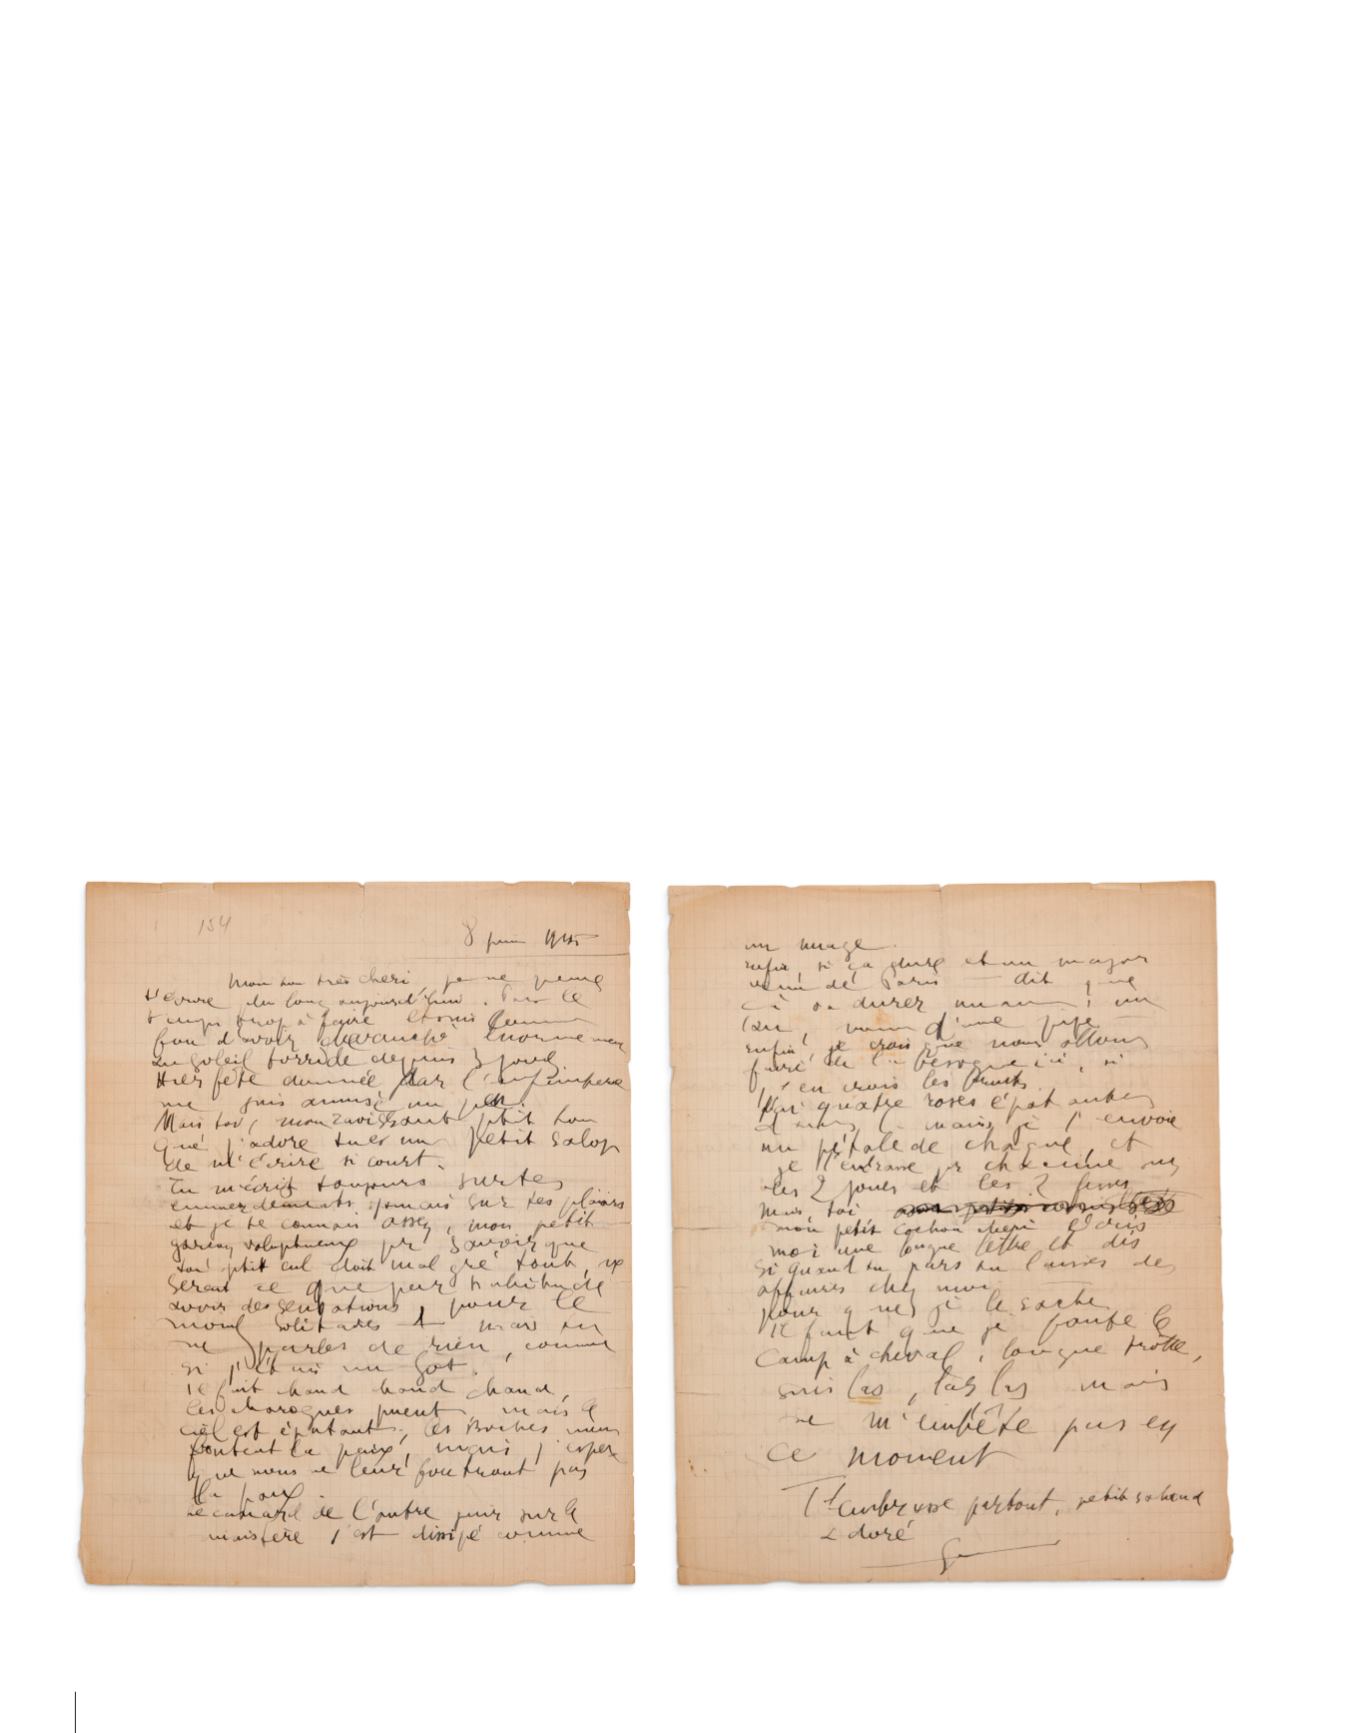 154
8 juin 1915
Mon Lou très chéri, je ne peux
t'écrire du long aujourd'hui. Pas le
temps trop à faire et suis comme
fou d'avoir chevauché énormément
au soleil torride depuis 3 jours
Hier fête donnée par l'
me suis amusé un peu.
Mais toi, mon ravissant ptit Lou
que j'adore tu es un petit salop
de m'écrire si court.
Tu m'écris toujours sur tes
emmerdements jamais sur tes plaisirs
et je te connais assez, mon petit
garçon voluptueux pr savoir que
ton ptit cul doit malgré tout, ne
serait ce que par habitude
avoir des sensations, pour le
moins solitaires mais tu
ne parles de rien, comme
si j'étais un
Il fait chaud chaud chaud,
les charognes puent mais le
ciel est épatant, les Boches nous
foutent la paix, mais j'espère
que nous ne leur foutront pas
la paix
Le canard de l'autre jour sur le
s'est dissipé comme
un nuage.
enfin, si ça dure et un major
venu de Paris dit que
ça va durer un an, un
an, nom d'une pipe
enfin, je crois que nous allons
faire de la besogne ici, si
j'en crois les bruits.
J'ai quatre roses épatantes
mais je t'envoie
un pétale de chaque et
je t'embrasse pr chacune sur
les 2 joues et les 2 fesses
Mais toi,
mon petit cochon chéri écris
moi une longue lettre et dis
si quand tu pars tu laisses des
affaires chez moi
pour que je le sache
Il faut que je foute le
camp à cheval, longue trotte,
suis las, las las mais
ne m'embête pas en
ce moment
T'embrasse partout, petit
adoré
Gui